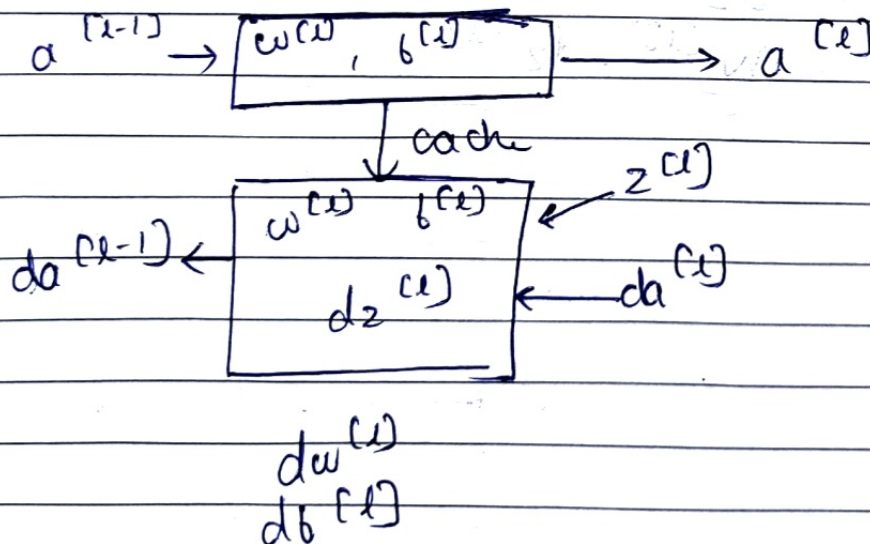 a^[l-1] → w^[l], b^[l] → a^[l]
cache
w^[l] b^[l] z^[l]
da^[l-1] ← dz^[l] ← da^[l]
dw^[l]
db^[l]